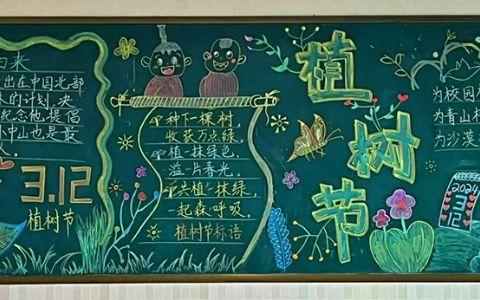 来
出在中国北部
的计划,来
纪念他,提倡
中山也是最
3.12
植树节
种下一棵树
收获万点绿。
植一抹绿色,
溢一片春光。
兴植一抹绿,
一起森呼吸。
植树节标语
植
树
节
为校园
为青山
为沙漠
2024
3
12